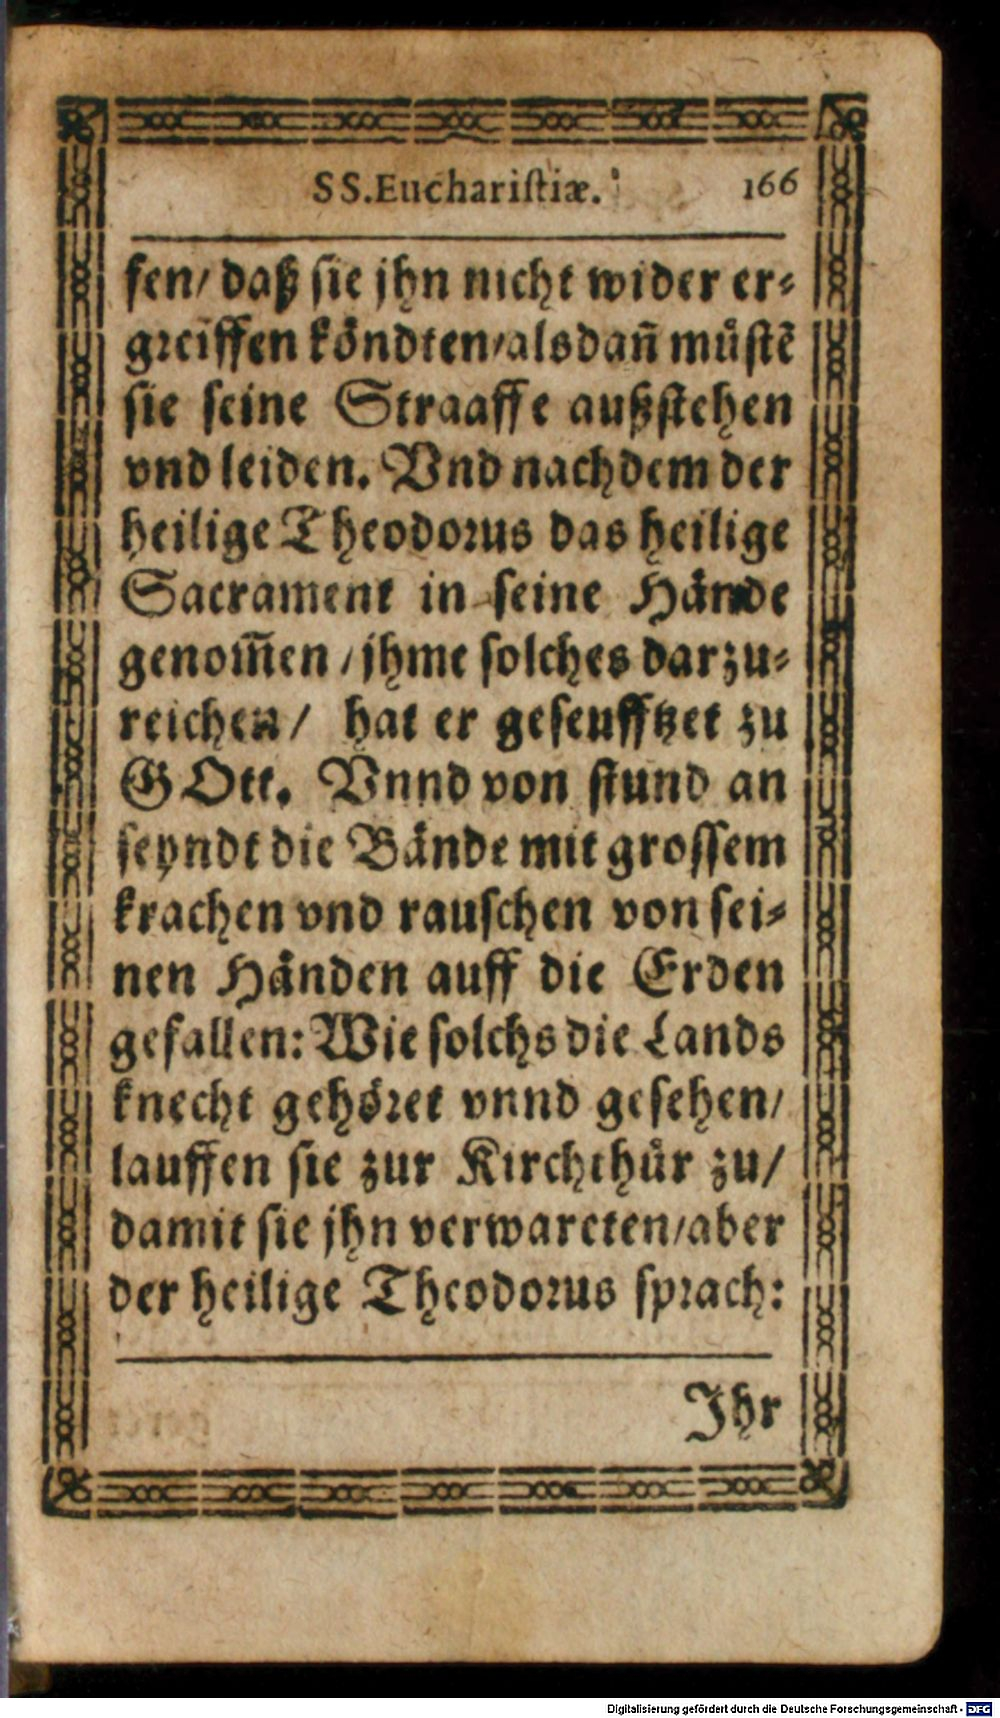 SS.Euchariſtiæ. 166
fen/ daß ſie jhn nicht wider er⸗
greiffen koͤndten/alsdañ muͤſtē
ſie ſeine Straaffe außſtehen
vnd leiden. Vnd nachdem der
heilige Theodorus das heilige
Sacrament in ſeine Haͤnde
genom̃en / jhme ſolches darzu⸗
reichen/ hat er geſeufftzet zu
GOtt. Vnnd von ſtund an
ſeyndt die Baͤnde mit groſſem
krachen vnd rauſchen von ſei⸗
nen Haͤnden auff die Erden
gefallen: Wie ſolchs die Lands
knecht gehoͤret vnnd geſehen/
lauffen ſie zur Kirchthuͤr zu/
damit ſie jhn verwareten/aber
der heilige Theodorus ſprach:
Jhr
Digitalisierung gefördert durch die Deutsche Forschungsgemeinschaft - DFG